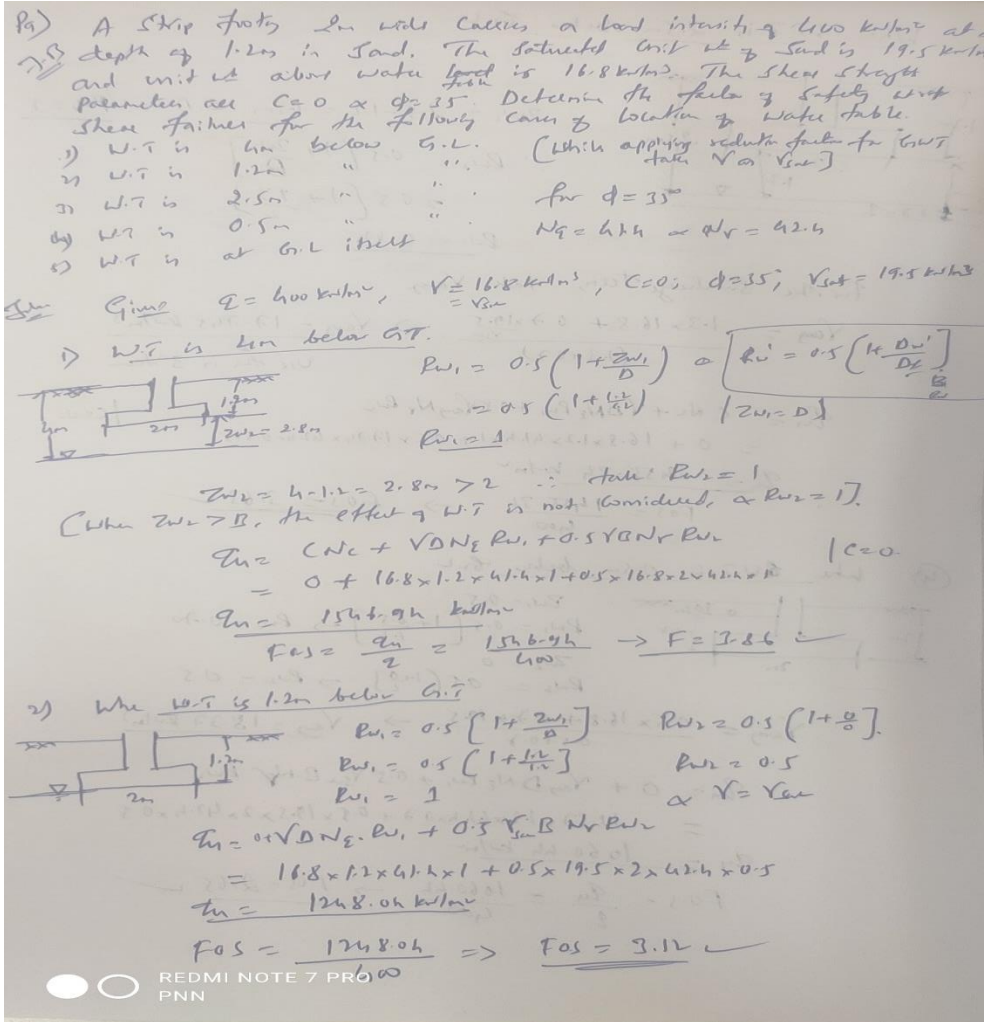 Pg)
7.B
A Strip footg 2m wide carries a load intensity of 400 kN/m² at
depth of 1.2m in Sand. The Saturated Unit wt of Sand is 19.5 kN/m
and unit wt above water table is 16.8 kN/m³. The Shear Strength
Parameters are C=0 & φ=35. Determine the factor of Safety w.r.t
Shear failure for the following cases of location of water table.
1) W.T is 4m below G.L. (while applying reduction factor for GWT
take γ or γsat)
2) W.T is 1.2m " "
3) W.T is 2.5m " " for φ=35°
4) W.T is 0.5m " " Nq = 41.4 & Nγ = 42.4
5) W.T is at G.L itself
Given q = 400 kN/m², γ = 16.8 kN/m³, C=0; φ=35; γsat = 19.5 kN/m³
1) W.T is 4m below G.T.
Rw₁ = 0.5 (1 + Zw₁/D) or Rw' = 0.5 (1 + Dw'/Df)
= 0.5 (1 + 1.2/1.2) / Zw₁ = D
Rw₁ = 1
4m 1.2m 2m Zw₂ = 2.8m
Zw₂ = 4-1.2 = 2.8m > 2 ∴ take Rw₂ = 1
(when Zw₂ > B, the effect of W.T is not Considered, & Rw₂ = 1].
qu = CNc + γDNq Rw₁ + 0.5 γBNγ Rw₂ | C=0
= 0 + 16.8 x 1.2 x 41.4 x 1 + 0.5 x 16.8 x 2 x 42.4 x 1
qu = 1546.94 kN/m²
FOS = qu/q = 1546.94/400 → F = 3.86
2) When W.T is 1.2m below G.T
Rw₁ = 0.5 [1 + Zw₁/D] Rw₂ = 0.5 (1 + 0/B].
Rw₁ = 0.5 (1 + 1.2/1.2] Rw₂ = 0.5
Rw₁ = 1 & γ = γsat
1.2m 2m
qu = 0+γDNq. Rw₁ + 0.5 γsat B Nγ Rw₂
= 16.8 x 1.2 x 41.4 x 1 + 0.5 x 19.5 x 2 x 42.4 x 0.5
qu = 1248.04 kN/m²
FOS = 1248.04/400 => FOS = 3.12
REDMI NOTE 7 PRO
PNN